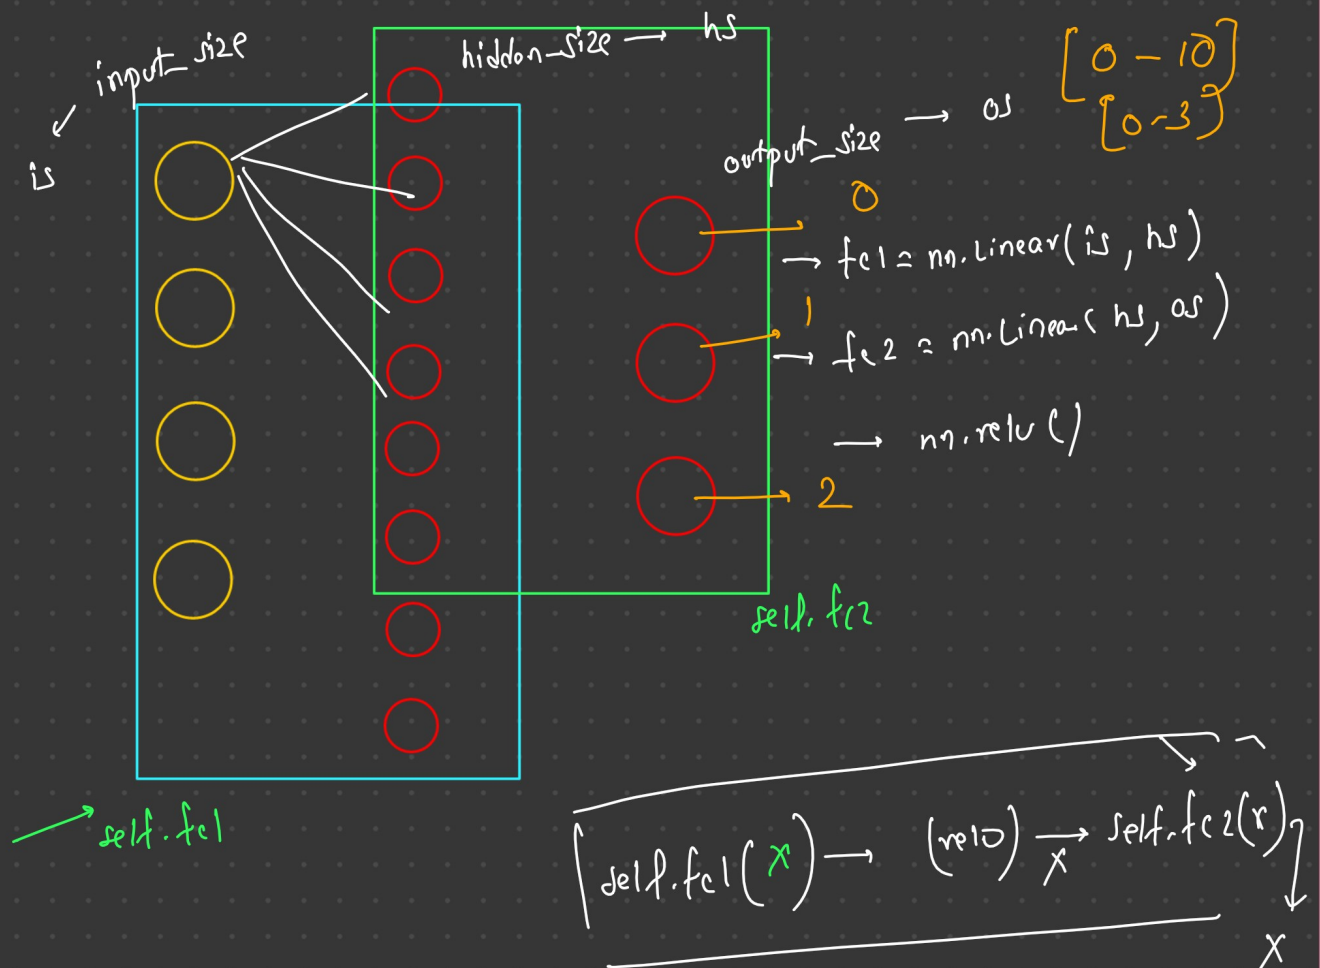 input_size
is
hiddon_size → hs
output_size → os
[0 - 10]
[0-3]
0
→ fc1 = nn.Linear(is, hs)
1
→ fc2 = nn.Linear(hs, os)
→ nn.relu()
2
self.fc2
→ self.fc1
self.fc1(x) → (relu) → self.fc2(x)
x
x